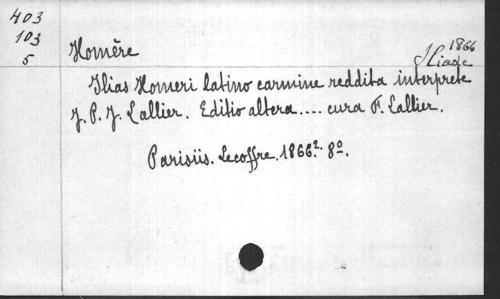 403
103
5
Homère
1866
Iliade
Ilias Homeri latino carmine reddita interprete
J. P. J. Lallier. Editio altera.... cura F. Lallier.
Parisiis. Lecoffre. 1866². 8º.